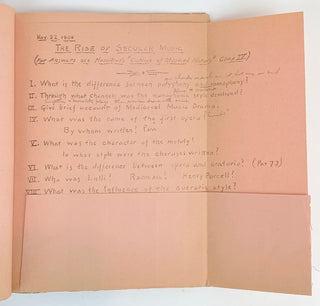 Nov. 22, 1904
THE RISE OF SECULAR MUSIC
(For Answers see Hamilton's "Outlines of Musical History" Chap. VI.)
I. What is the difference between polyphony and monophony?
II. Through what changes was the monophonic style developed?
III. Give brief account of Mediaeval Music Drama.
IV. What was the name of the first opera?
By whom written?
V. What was the character of the melody?
In what style were the choruses written?
VI. What is the difference between opera and oratorio? (Par 73)
VII. Who was Lulli? Rameau? Henry Purcell?
VIII. What was the influence of the operatic style?